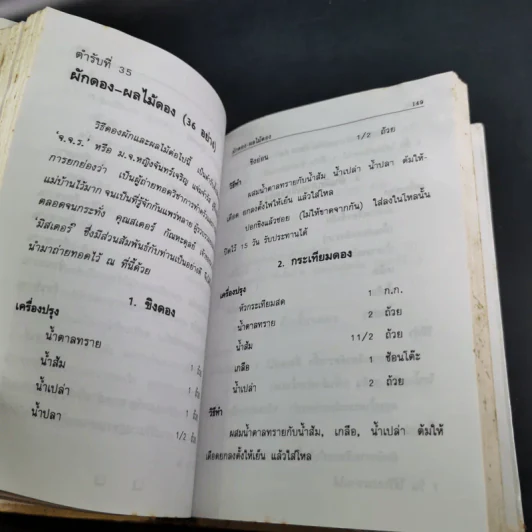 ตำรับที่ 35
ผักดอง-ผลไม้ดอง (36 อย่าง)
วิธีดองผักและผลไม้ต่อไปนี้
'จ.จ.ร.' หรือ ม.จ.หญิงจันทร์เจริญ
การยกย่องว่า เป็นผู้ถ่ายทอดวิชาการ
แม่บ้านไว้มาก จนเป็นที่รู้จักกันแพร่หลาย
ตลอดจนกระทั่ง คุณสเตอร์
'มิสเตอร์' ซึ่งมีส่วนสัมพันธ์กับท่านเป็นอย่างดี
นำมาถ่ายทอดไว้ ณ ที่นี้ด้วย
1. ขิงดอง
เครื่องปรุง
น้ำตาลทราย 1
น้ำส้ม 1
น้ำเปล่า 1
น้ำปลา 1/2
ผักดอง-ผลไม้ดอง 149
ขิงอ่อน 1/2 ถ้วย
วิธีทำ
ผสมน้ำตาลทรายกับน้ำส้ม น้ำเปล่า น้ำปลา ต้มให้
เดือด ยกลงตั้งไฟให้เย็น แล้วใส่ไหล
ปอกขิงแล้วซอย (ไม่ให้ขาดจากกัน) ใส่ลงในไหลนั้น
ปิดไว้ 15 วัน รับประทานได้
2. กระเทียมดอง
เครื่องปรุง
หัวกระเทียมสด 1 ก.ก.
น้ำตาลทราย 2 ถ้วย
น้ำส้ม 11/2 ถ้วย
เกลือ 1 ช้อนโต๊ะ
น้ำเปล่า 2 ถ้วย
วิธีทำ
ผสมน้ำตาลทรายกับน้ำส้ม, เกลือ, น้ำเปล่า ต้มให้
เดือดยกลงตั้งให้เย็น แล้วใส่ไหล